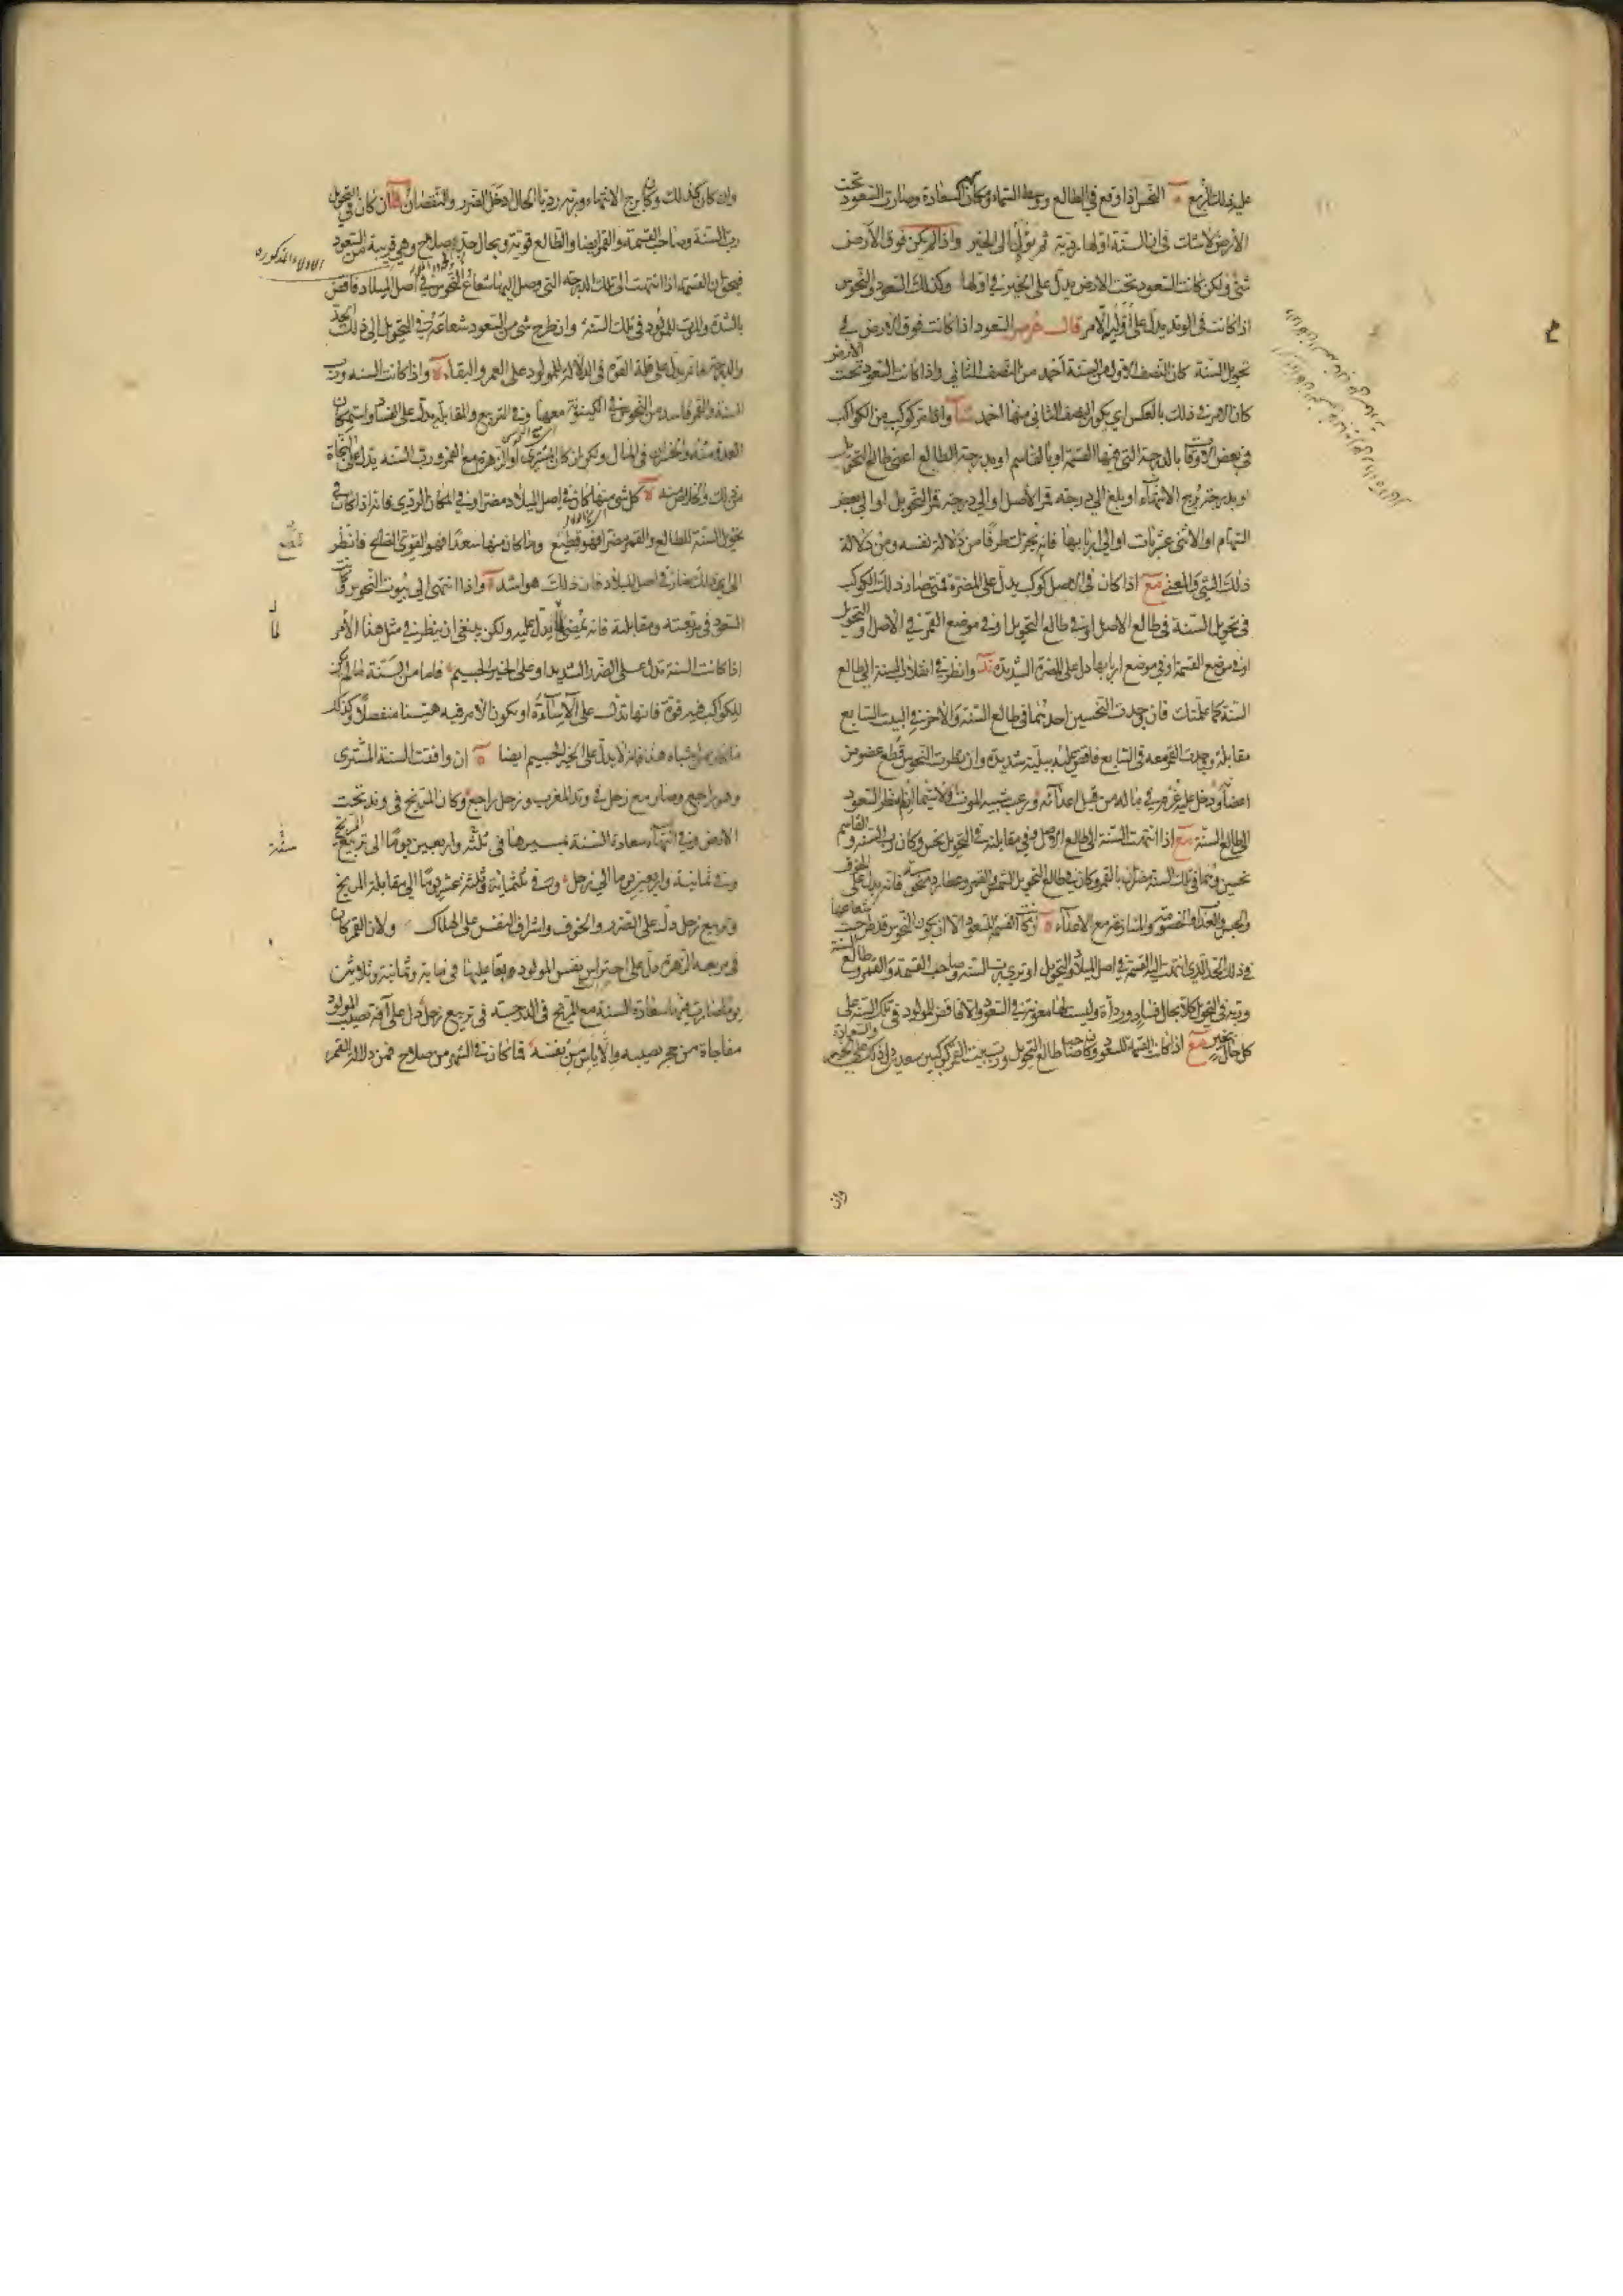 عليه ذلك الربع النحس اذا وقع في الطالع ووسط السماء ومكان السعادة وصارت السعود تحت
الارض فان السنة اولها ردية ثم يؤل الى الخير واذا لم يكن فوق الارض
شئ ولكن كانت السعود تحت الارض يدل على الخير في اولها وكذلك السعود والنحوس
اذا كانت في الوتد يدل على اول الامر قال هرمس السعود اذا كانت فوق الارض في
تحويل السنة كان النصف الاول من السنة احمد من النصف الثاني واذا كانت السعود تحت الارض
كان الامر في ذلك بالعكس اي يكون النصف الثاني منها احمد واذا مر كوكب من الكواكب
في بعض الاوقات بالدرجة التي فيها القسمة او بالقاسم او بدرجة الطالع اعني طالع التحويل
او بدرجة برج الانتهاء او بلغ الى درجة قمر الاصل او الى درجة قمر التحويل او الى بعض
السهام او الاثنى عشريات او الى اربابها فانه يحرك طرفا من دلالة نفسه ومن دلالة
ذلك الشئ والمعنى مع اذا كان في الاصل كوكب يدل على المضرة فمتى صار ذلك الكوكب
في تحويل السنة في طالع الاصل او في طالع التحويل او في موضع القمر في الاصل والتحويل
او في موضع القسمة او في موضع اربابها دل على المضرة الشديدة وانظر في انقلاب السنة الى طالع
السنة كما علمتك فان وجدت النحسين احدهما في طالع السنة والآخر في البيت السابع
مقابله ووجدت القمر معه في السابع فاقض عليه ببلية شديدة وان نظرت النحوس قطع عضو من
اعضاؤه ودخل عليه غرم في ماله من قبل اعدائه ورعب شبيه الموت ولا سيما ان لم ينظر السعود
الى طالع السنة مع اذا انتهت السنة الى طالع الاصل وفي مقابلته في التحويل نحس وكان رب السنة والقاسم
نحسين وهما في تلك السنة بالقمر وكان في طالع التحويل الشمس والقمر وعطارد فانه يدل على الخوف
والحبس والعذاب والخصومة والمنازعة مع الاعداء وكان القسم للسعود الا ان يكون النحوس قد طرحت شعاعها
في ذلك الحد الذي انتهت اليه القسمة في اصل الميلاد والتحويل او ترى رب السنة وصاحب القسمة والقمر وطالع السنة
وربه في التحويل كلا بحال فساد ورداءة وليست لها معونة من السعود والا فاقض للمولود في تلك السنة على
كل حال بخير مع اذا كانت القسمة للسعود وكان صاحبا طالع التحويل ورب بيت القمر كوكبين سعدين دل ذلك على الخير والسعادة
وان
وان كان كذلك وكان برج الانتهاء وربه رديا الحال ادخل الضرر والنقصان فان كان في التحويل
رب السنة وصاحب القسمة والقمر ايضا والطالع قوية وبحال جيد صلاح وهي قريبة من السعود
الادلاء المذكورة
فيجئ ان القسمة اذا انتهت الى تلك الدرجة التي وصل اليها شعاع النحوس في اصل الميلاد فاقض
بالشدة والموت للمولود في تلك السنة وان طرح شئ من السعود شعاعه في التحويل الى ذلك الحد
والدرجة فانه يدل على قلة القوم في الدلالة للمولود على العمر والبقاء واذا كانت السنة ورب
السنة والقمر فاسد من النحوس في الكينونة معها وفي التربيع والمقابلة يدل على الفساد واستمكان
العدو منه والخسران في المال ولكن ان كان المشتري او الزهرة مع القمر ورب السنة يدل على النجاة
من ذلك والخلاص منه كل شئ منها كان في اصل الميلاد مضرا وفي المكان الردي فانه اذا كان في
تحويل السنة للطالع والقمر مضرا فهو قطيع وما كان منها سعدا فهو القوي الصالح فانظر
الى اي ذلك صار في اصل الميلاد فان ذلك هو اشد واذا انتهى الى بيوت النحوس وكانت
السعود في تربيعه ومقابلته فانه يمضي ما يدل عليه ولكن ينبغي ان ينظر في مثل هذا الامر
اذا كانت السنة تدل على الضرر الشديد او على الخير الجسيم فاما من السنة ما لم يكن
للكواكب فيه قوة فانها تدل على الاساءة او يكون الامر فيه هينا منفصلا وكذلك
ما كان من اشباه هذا فانه لا يدل على الخير الجسيم ايضا ان وافقت السنة المشتري
وهو راجع وصار مع زحل في وتد المغرب وزحل راجع وكان المريخ في وتد تحت
الارض وفي انتهاء سعادة السنة بمسيرها في ثلثة واربعين يوما الى تربيع المريخ
وفي ثمانية واربعين يوما الى زحل وفي ثلثمائة وثلثة عشر يوما الى مقابلة المريخ
وتربيع زحل دل على الضرر والخوف واشراف النفس على الهلاك ولان القمر كان
في تربيعه الزهرة دل على احتراس نفس المولود وبقا عليها في مائة وثمانية وثلاثين
يوما صارت فيها سعادة السنة مع المريخ في الدرجة في تربيع زحل دل على آفة تصيب المولود
مفاجاة من حجر يصيبه والاياس من نفسه فما كان في الشهر من صلاح فمن دلالة القمر